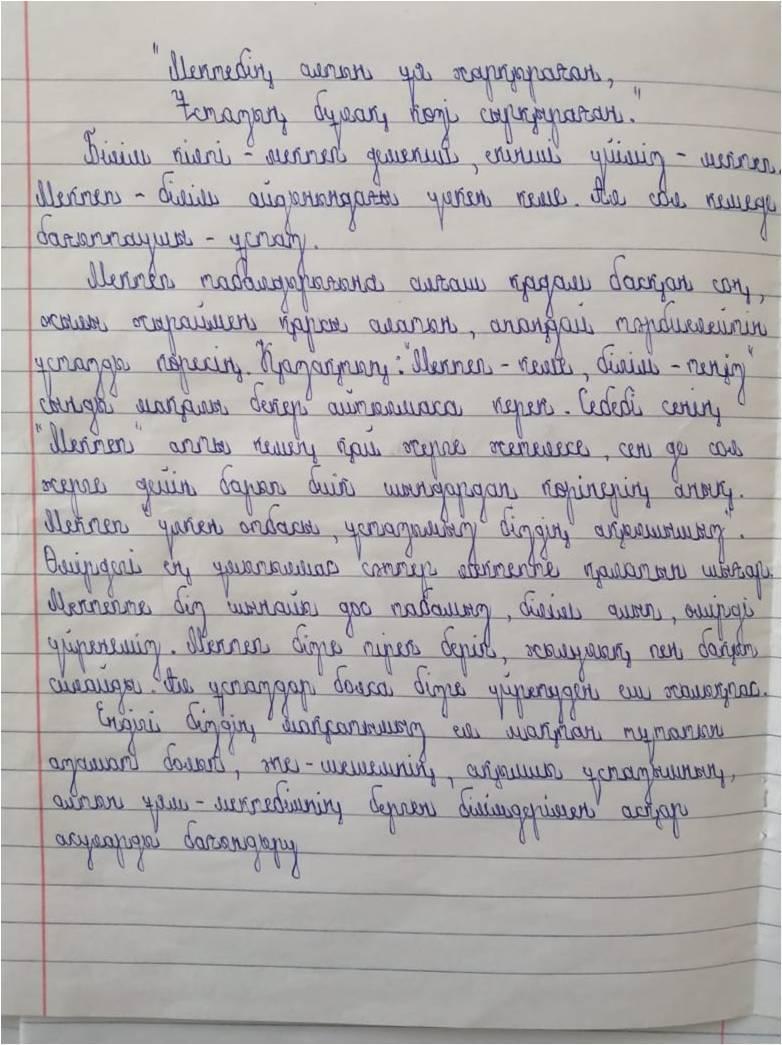 "Мектебің алтын ұя жарқыраған,
Ұстазың бұлақ көзі сыңғыраған."
Білім кілті - мектеп демекші, екінші үйіміз - мектеп.
Мектеп - білім айдынындағы үлкен кеме. Ал сол кемеде
бағыттаушы - ұстаз.
Мектеп табалдырығына алғаш қадам басқан соң,
жылы жыраймен қарсы алатын, анаңдай тәрбиелейтін
ұстазды көресің. Қазақтың: "Мектеп - кеме, білім - теңіз"
сынды мақалы бекер айтылмаса керек. Себебі сенің
"Мектеп" атты кемең қай жерге жетелесе, сен де сол
жерге дейін барып биік шыңдардан көрінерің анық.
Мектеп "үлкен отбасы, ұстазымыз біздің ақылшымыз".
Өміріңдегі ең ұмытылмас сәттер мектепте қалатын шығар.
Мектепте біз шынайы дос табамыз, білім алып, өмірді
үйренеміз. Мектеп бізге тірек беріп, жылулық пен бақыт
сыйлайды. Ал ұстаздар болса бізге үйретуден еш жалықпас.
Ендігі біздің мақсатымыз ел мақтан тұтатын
азамат болып, әке-шешемнің, ақылшы ұстазымның,
алтын ұям - мектебімнің берген білімдерімен асқар
асуларды бағындыру